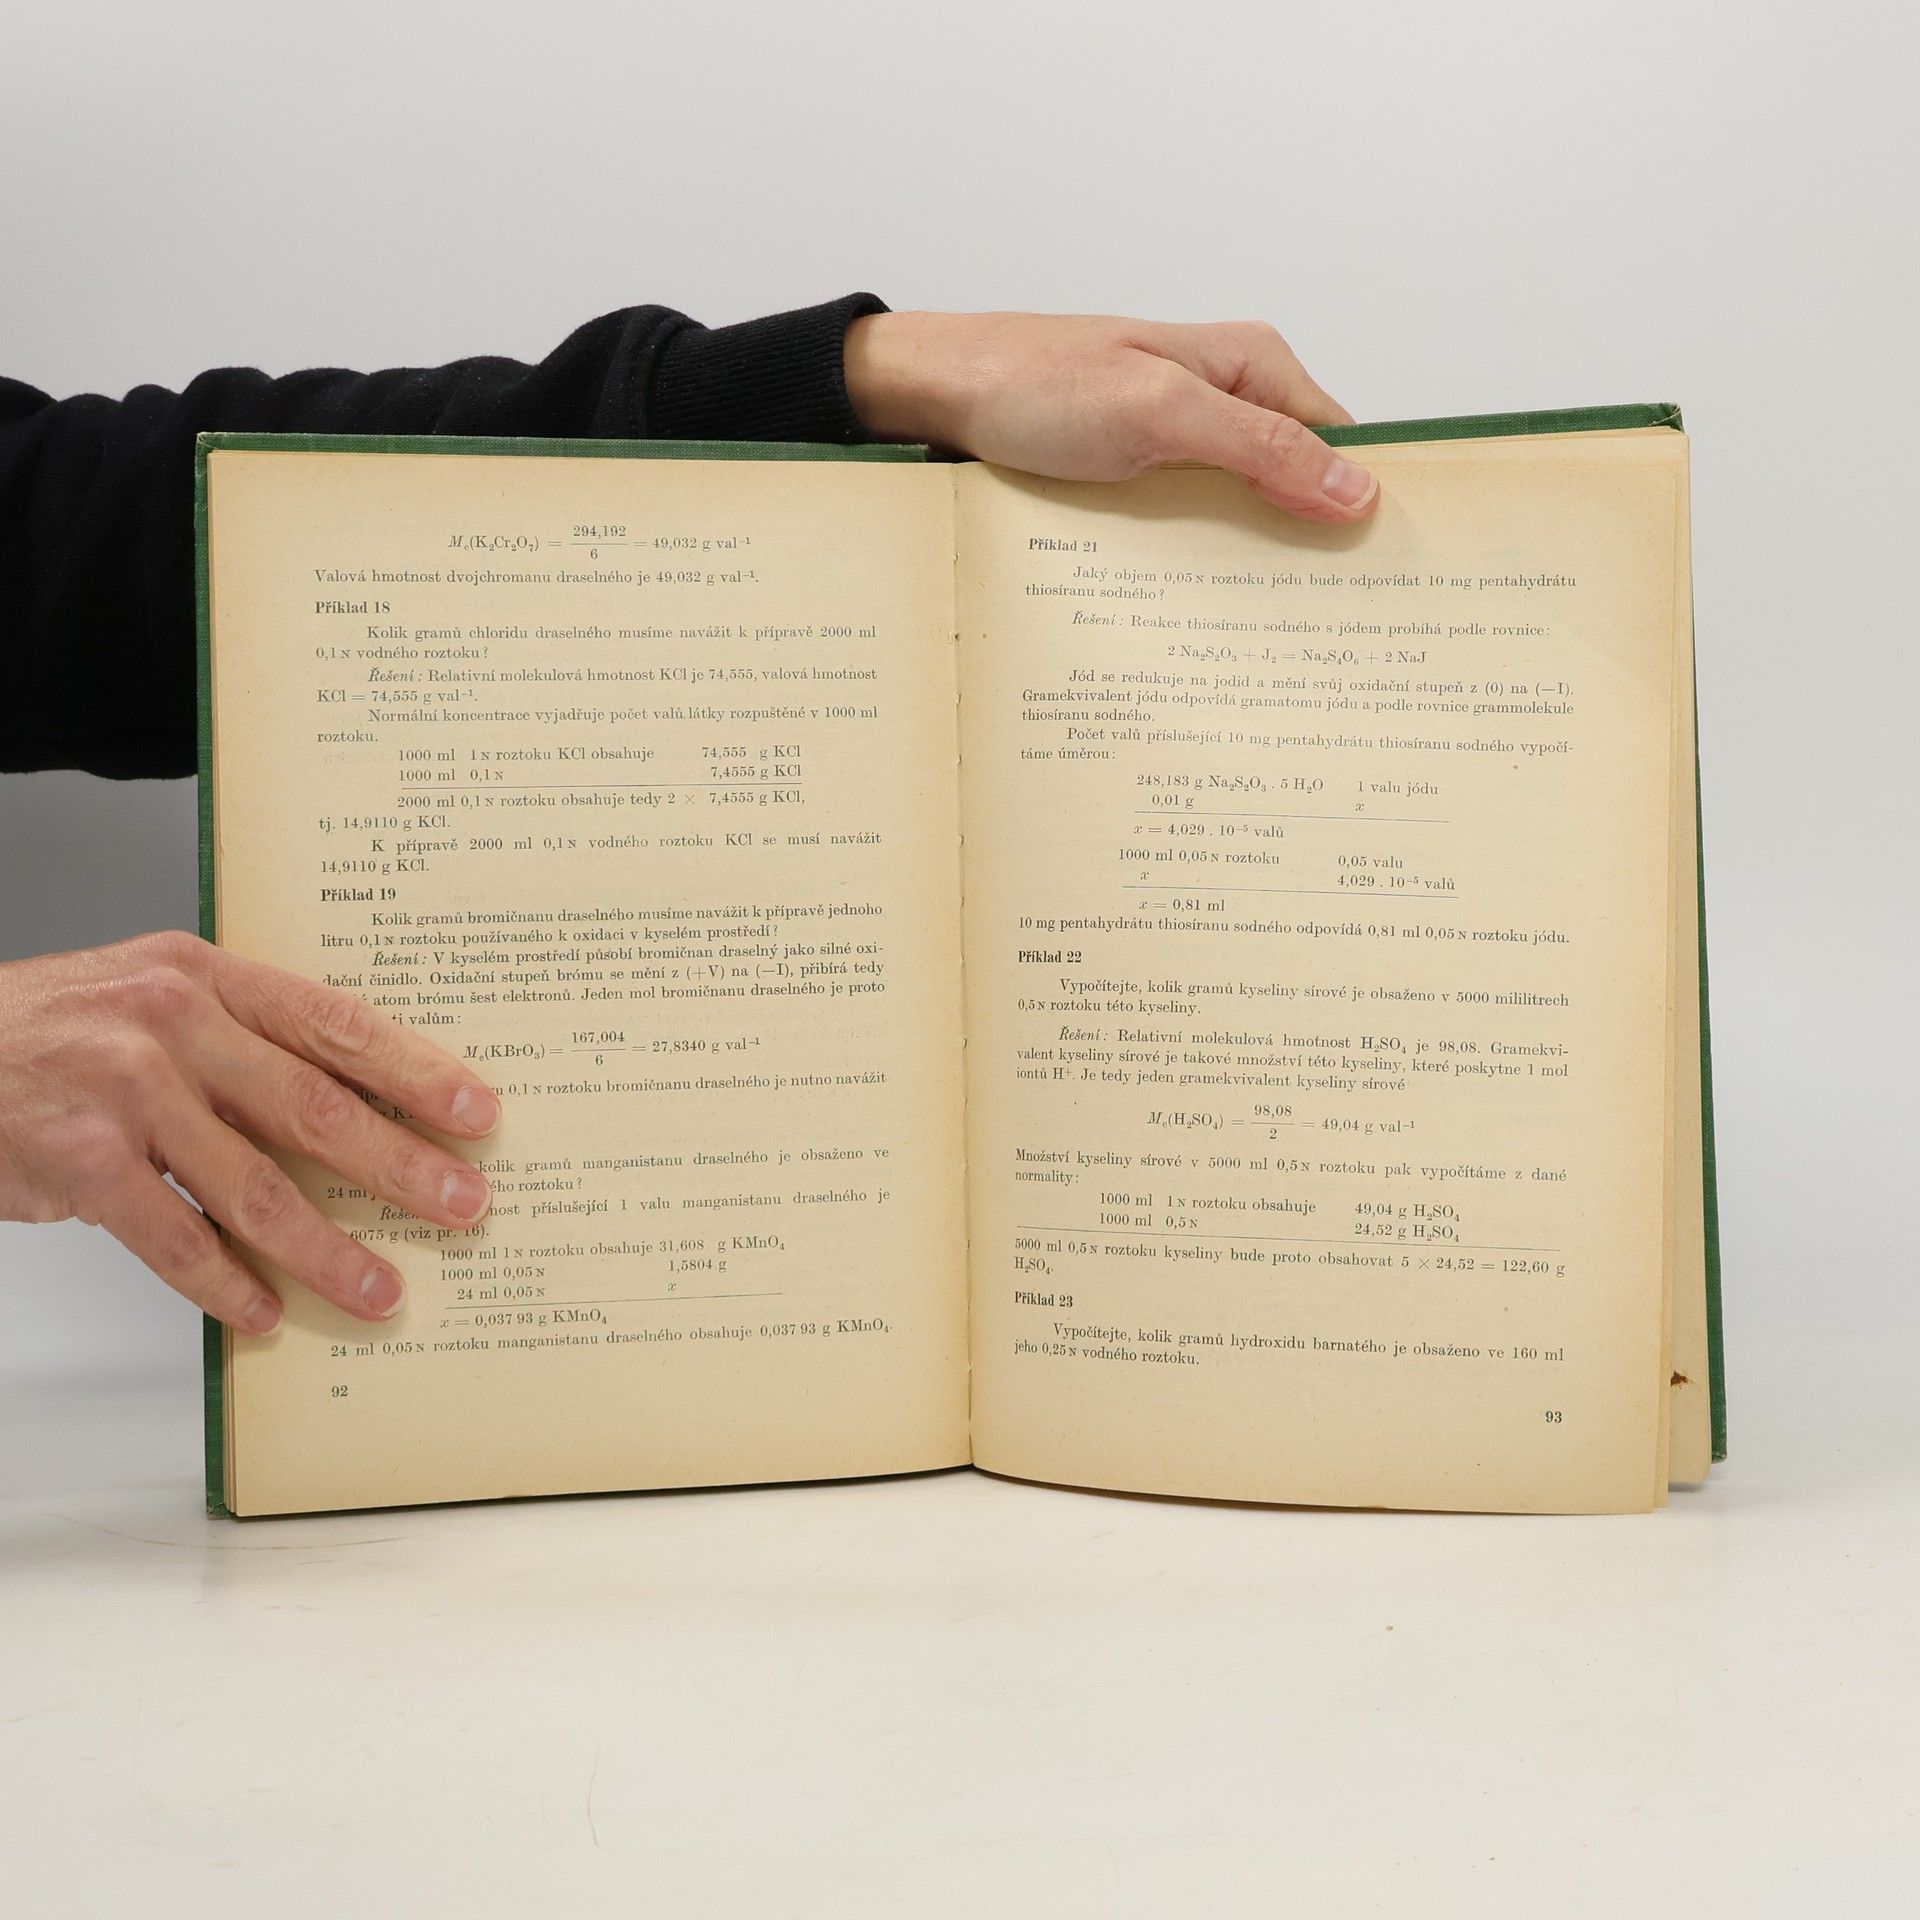 M_e(K₂Cr₂O₇) = 294,192 / 6 = 49,032 g val⁻¹
Valová hmotnost dvojchromanu draselného je 49,032 g val⁻¹.
Příklad 18
Kolik gramů chloridu draselného musíme navážit k přípravě 2000 ml
0,1 N vodného roztoku?
Řešení: Relativní molekulová hmotnost KCl je 74,555, valová hmotnost
KCl = 74,555 g val⁻¹.
Normální koncentrace vyjadřuje počet valů látky rozpuštěné v 1000 ml
roztoku.
1000 ml 1 N roztoku KCl obsahuje 74,555 g KCl
1000 ml 0,1 N 7,4555 g KCl
2000 ml 0,1 N roztoku obsahuje tedy 2 × 7,4555 g KCl,
tj. 14,9110 g KCl.
K přípravě 2000 ml 0,1 N vodného roztoku KCl se musí navážit
14,9110 g KCl.
Příklad 19
Kolik gramů bromičnanu draselného musíme navážit k přípravě jednoho
litru 0,1 N roztoku používaného k oxidaci v kyselém prostředí?
Řešení: V kyselém prostředí působí bromičnan draselný jako silné oxi-
dační činidlo. Oxidační stupeň brómu se mění z (+V) na (—I), přibírá tedy
atom brómu šest elektronů. Jeden mol bromičnanu draselného je proto
valům:
M_e(KBrO₃) = 167,004 / 6 = 27,8340 g val⁻¹
0,1 N roztoku bromičnanu draselného je nutno navážit
kolik gramů manganistanu draselného je obsaženo ve
24 ml roztoku?
Řešení: příslušející 1 valu manganistanu draselného je
6075 g (viz př. 16).
1000 ml 1 N roztoku obsahuje 31,608 g KMnO₄
1000 ml 0,05 N 1,5804 g
24 ml 0,05 N x
x = 0,037 93 g KMnO₄
24 ml 0,05 N roztoku manganistanu draselného obsahuje 0,037 93 g KMnO₄.
92
Příklad 21
Jaký objem 0,05 N roztoku jódu bude odpovídat 10 mg pentahydrátu
thiosíranu sodného?
Řešení: Reakce thiosíranu sodného s jódem probíhá podle rovnice:
2 Na₂S₂O₃ + J₂ = Na₂S₄O₆ + 2 NaJ
Jód se redukuje na jodid a mění svůj oxidační stupeň z (0) na (—I).
Gramekvivalent jódu odpovídá gramatomu jódu a podle rovnice grammolekule
thiosíranu sodného.
Počet valů příslušející 10 mg pentahydrátu thiosíranu sodného vypočí-
táme úměrou:
248,183 g Na₂S₂O₃ . 5 H₂O 1 valu jódu
0,01 g x
x = 4,029 . 10⁻⁵ valů
1000 ml 0,05 N roztoku 0,05 valu
x 4,029 . 10⁻⁵ valů
x = 0,81 ml
10 mg pentahydrátu thiosíranu sodného odpovídá 0,81 ml 0,05 N roztoku jódu.
Příklad 22
Vypočítejte, kolik gramů kyseliny sírové je obsaženo v 5000 mililitrech
0,5 N roztoku této kyseliny.
Řešení: Relativní molekulová hmotnost H₂SO₄ je 98,08. Gramekvi-
valent kyseliny sírové je takové množství této kyseliny, které poskytne 1 mol
iontů H⁺. Je tedy jeden gramekvivalent kyseliny sírové
M_e(H₂SO₄) = 98,08 / 2 = 49,04 g val⁻¹
Množství kyseliny sírové v 5000 ml 0,5 N roztoku pak vypočítáme z dané
normality:
1000 ml 1 N roztoku obsahuje 49,04 g H₂SO₄
1000 ml 0,5 N 24,52 g H₂SO₄
5000 ml 0,5 N roztoku kyseliny bude proto obsahovat 5 × 24,52 = 122,60 g
H₂SO₄.
Příklad 23
Vypočítejte, kolik gramů hydroxidu barnatého je obsaženo ve 160 ml
jeho 0,25 N vodného roztoku.
93